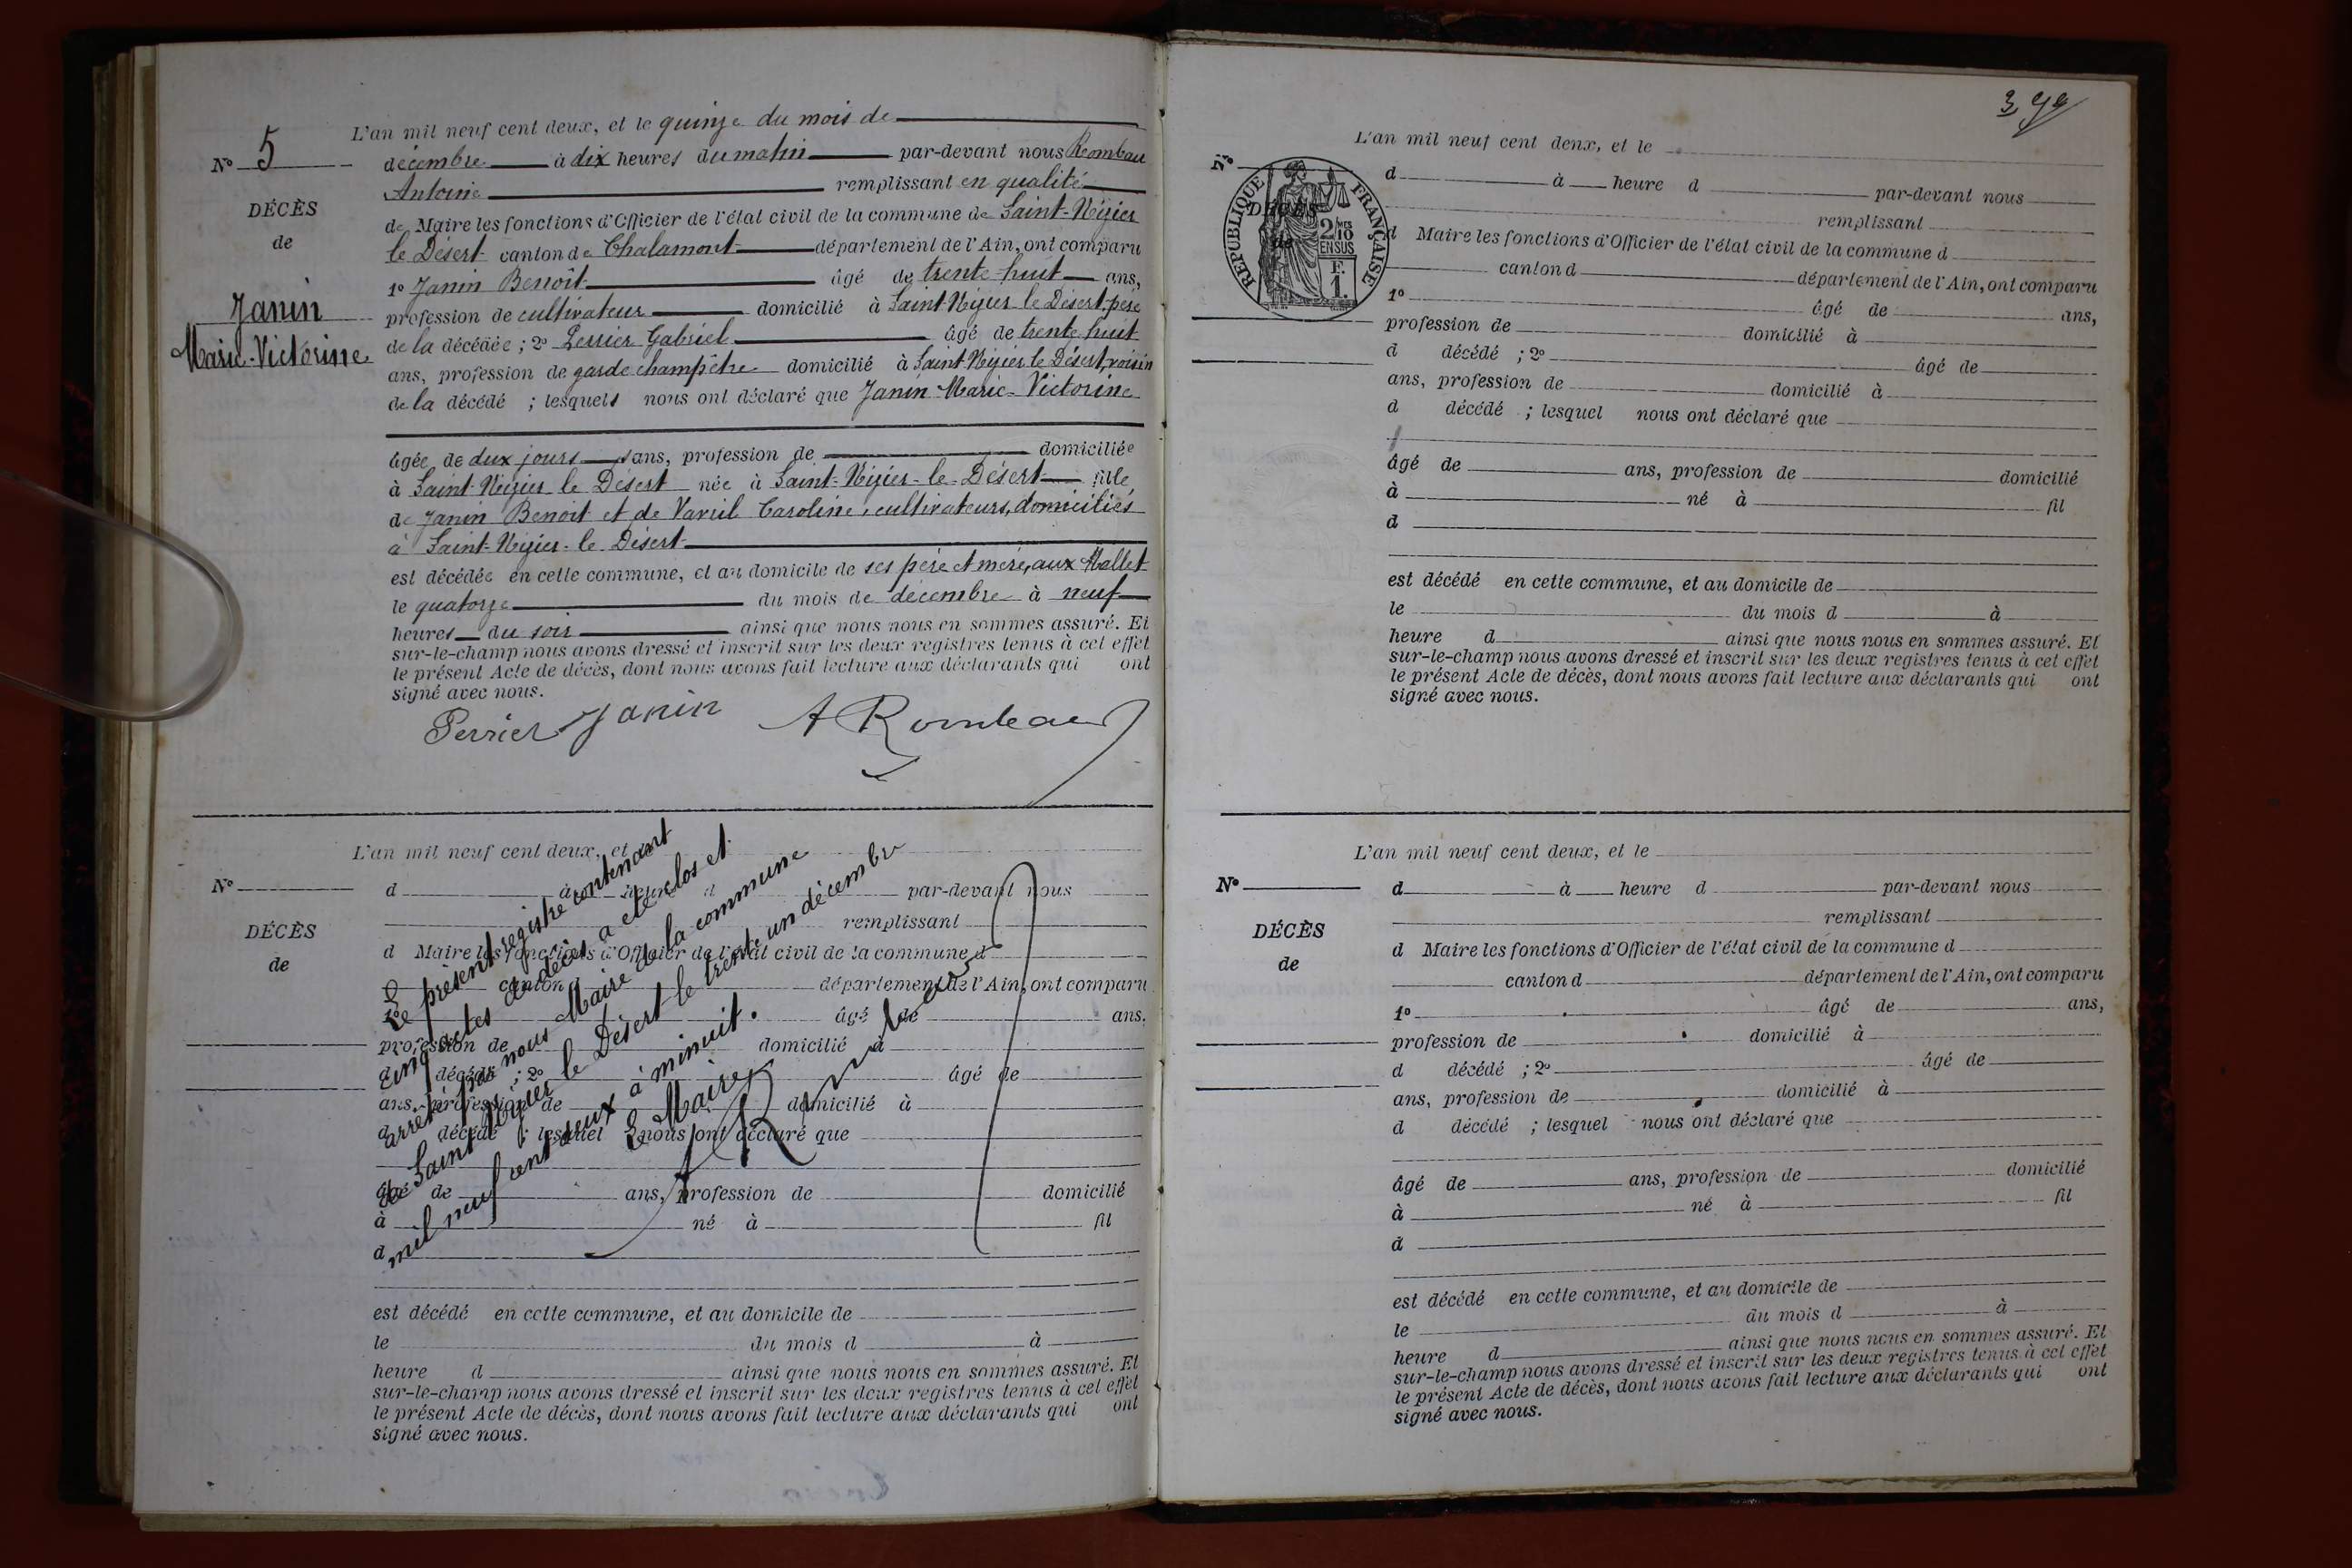 N° 5
DÉCÈS
de
Janin
Marie-Victorine
L'an mil neuf cent deux, et le quinze du mois de
décembre à dix heures du matin par-devant nous Rombau
Antoine remplissant en qualité
de Maire les fonctions d'Officier de l'état civil de la commune de Saint-Nizier
le Désert canton de Chalamont département de l'Ain, ont comparu
1° Janin Benoît âgé de trente-huit ans,
profession de cultivateur domicilié à Saint-Nizier le Désert, père
de la décédée ; 2° Perrier Gabriel âgé de trente huit
ans, profession de garde champêtre domicilié à Saint-Nizier le Désert, voisin
de la décédé ; lesquels nous ont déclaré que Janin Marie-Victorine
âgée de deux jours ans, profession de domiciliée
à Saint-Nizier le Désert née à Saint-Nizier-le-Désert fille
de Janin Benoit et de Caroline, cultivateurs, domiciliés
à Saint-Nizier-le-Désert
est décédée en cette commune, et au domicile de ses père et mère, aux Mallet
le quatorze du mois de décembre à neuf
heures du soir ainsi que nous nous en sommes assuré. Et
sur-le-champ nous avons dressé et inscrit sur les deux registres tenus à cet effet
le présent Acte de décès, dont nous avons fait lecture aux déclarants qui ont
signé avec nous.
Perrier Janin A Rombeau
N°
DÉCÈS
de
L'an mil neuf cent deux, et
d à heure d par-devant nous
remplissant
d Maire les fonctions d'Officier de l'état civil de la commune d
canton d département de l'Ain, ont comparu
1° âgé de ans,
profession de domicilié à
d décédé ; 2° âgé de
ans, profession de domicilié à
d décédé ; lesquel nous ont déclaré que
âgé de ans, profession de domicilié
à né à fil
d
est décédé en cette commune, et au domicile de
le du mois d à
heure d ainsi que nous nous en sommes assuré. Et
sur-le-champ nous avons dressé et inscrit sur les deux registres tenus à cet effet
le présent Acte de décès, dont nous avons fait lecture aux déclarants qui ont
signé avec nous.
Le présent registre contenant
cinq actes de décès a été clos et
arrêté par nous Maire de la commune
de Saint Nizier le Désert le trente un décembre
mil neuf cent deux à minuit.
Le Maire
A Rombeau
399
N°
RÉPUBLIQUE FRANÇAISE
2/10 MES
EN SUS
F.
1.
DÉCÈS
de
L'an mil neuf cent deux, et le
d à heure d par-devant nous
remplissant
d Maire les fonctions d'Officier de l'état civil de la commune d
canton d département de l'Ain, ont comparu
1° âgé de ans,
profession de domicilié à
d décédé ; 2° âgé de
ans, profession de domicilié à
d décédé ; lesquel nous ont déclaré que
âgé de ans, profession de domicilié
à né à fil
d
est décédé en cette commune, et au domicile de
le du mois d à
heure d ainsi que nous nous en sommes assuré. Et
sur-le-champ nous avons dressé et inscrit sur les deux registres tenus à cet effet
le présent Acte de décès, dont nous avons fait lecture aux déclarants qui ont
signé avec nous.
N°
DÉCÈS
de
L'an mil neuf cent deux, et le
d à heure d par-devant nous
remplissant
d Maire les fonctions d'Officier de l'état civil de la commune d
canton d département de l'Ain, ont comparu
1° âgé de ans,
profession de domicilié à
d décédé ; 2° âgé de
ans, profession de domicilié à
d décédé ; lesquel nous ont déclaré que
âgé de ans, profession de domicilié
à né à fil
d
est décédé en cette commune, et au domicile de
le du mois d à
heure d ainsi que nous nous en sommes assuré. Et
sur-le-champ nous avons dressé et inscrit sur les deux registres tenus à cet effet
le présent Acte de décès, dont nous avons fait lecture aux déclarants qui ont
signé avec nous.